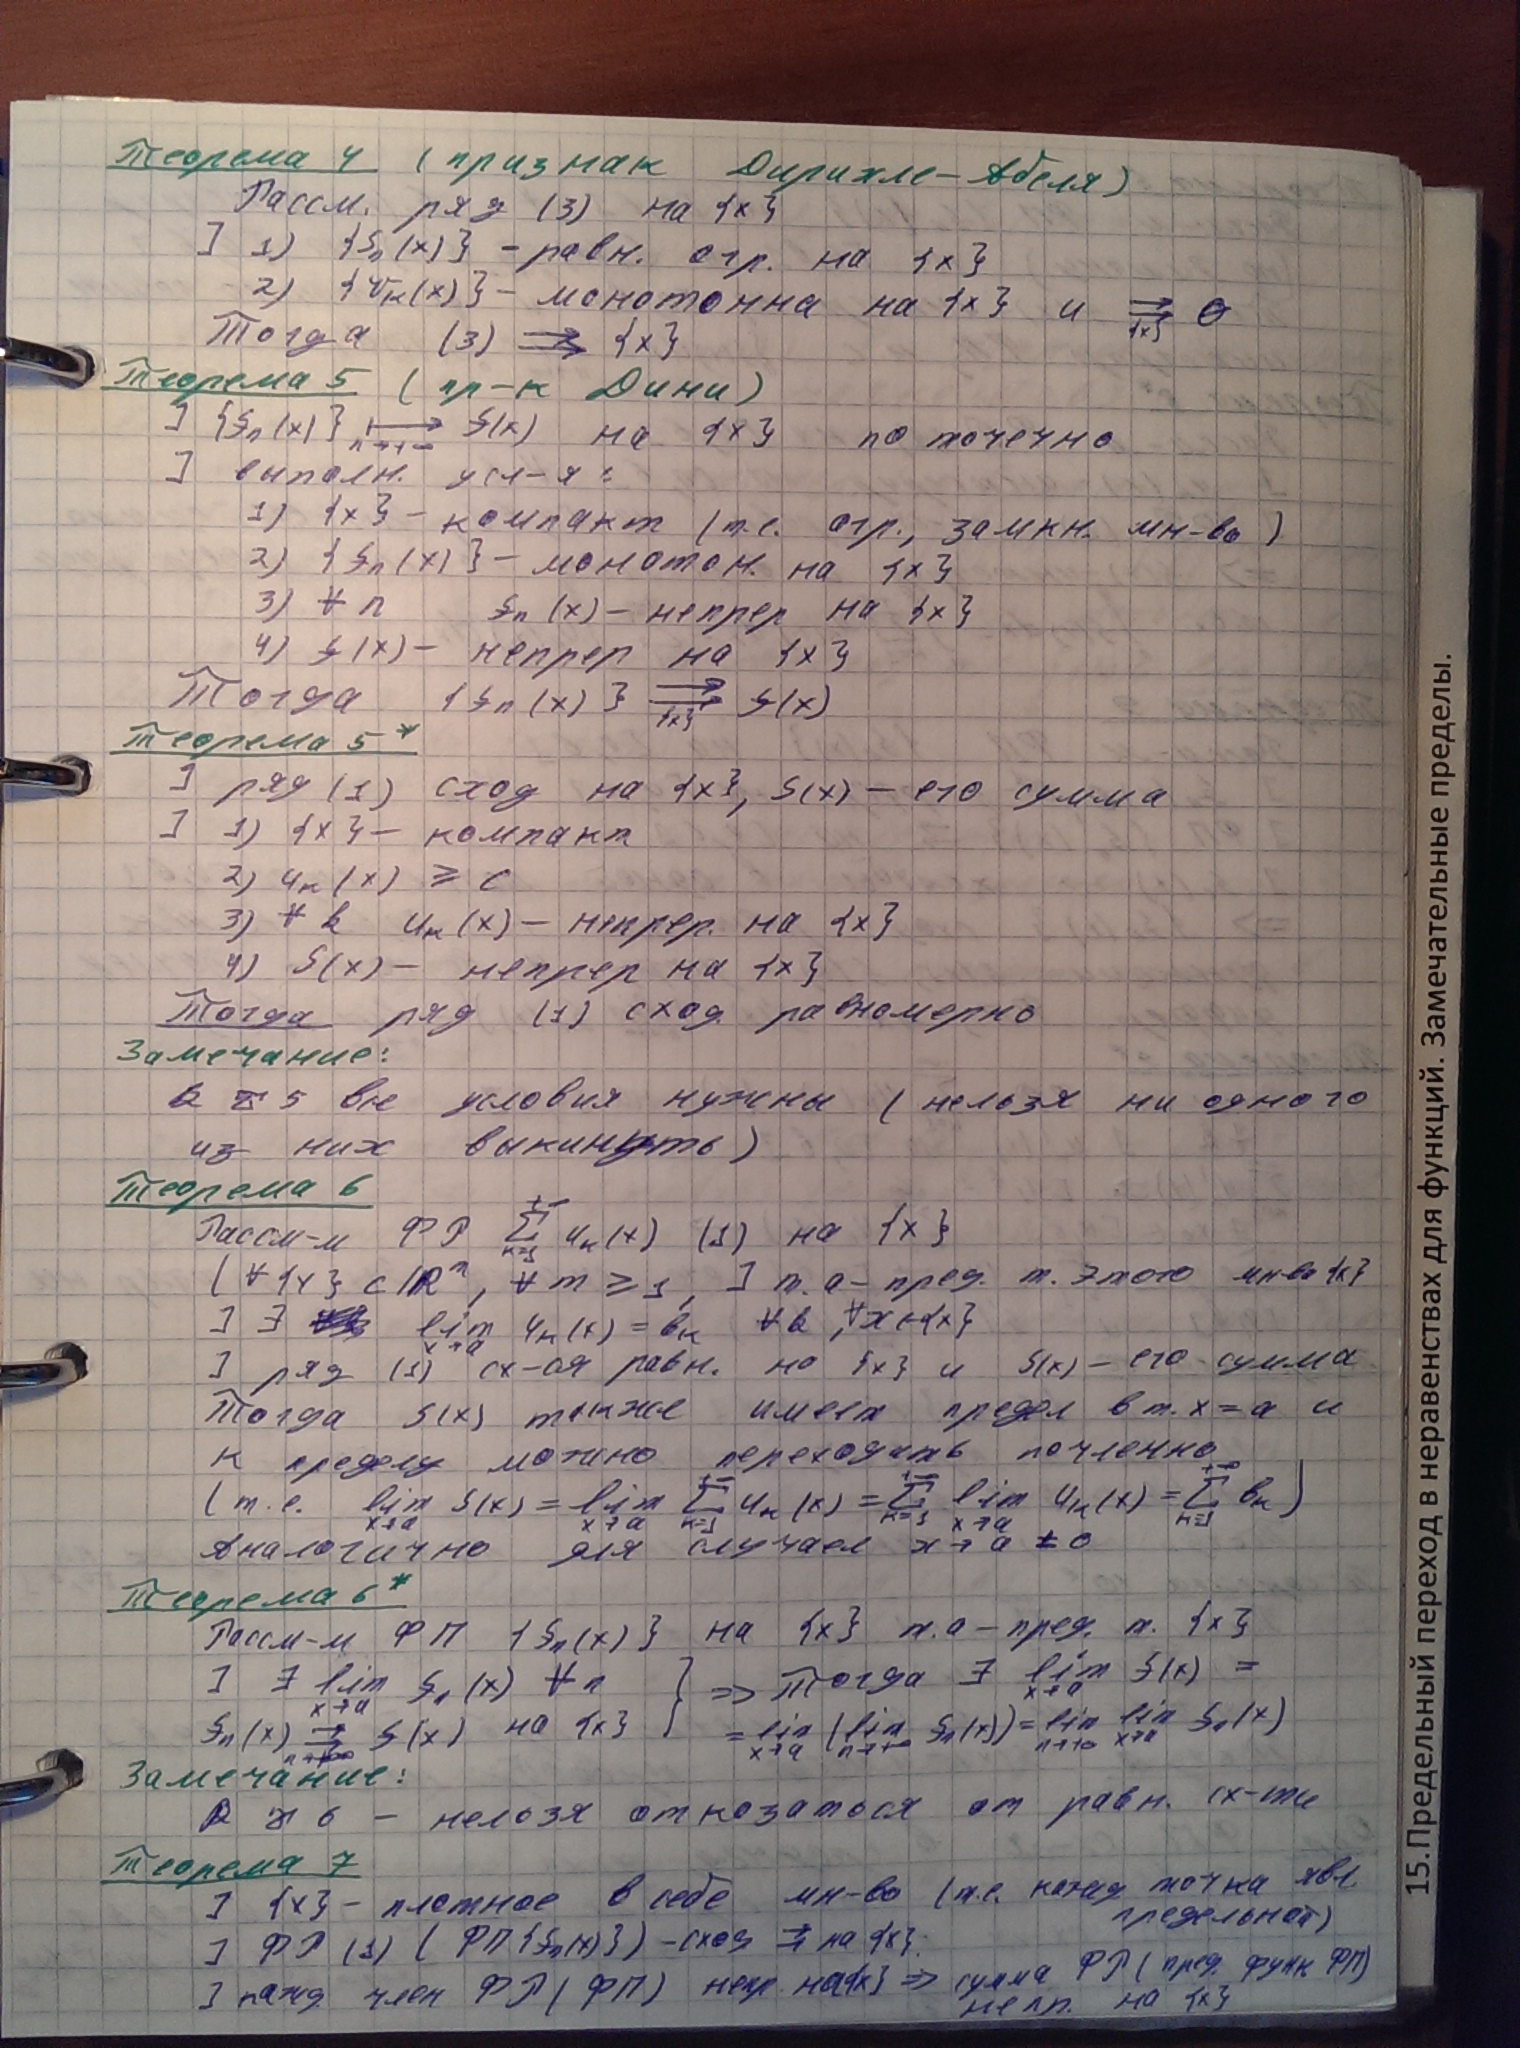 Теорема 4 (признак Дирихле-Абеля)
Рассм. ряд (3) на {x}
] 1) {Sₙ(x)} - равн. огр. на {x}
2) {vₖ(x)} - монотонна на {x} и ⇉{x} 0
Тогда (3) ⇉ {x}
Теорема 5 (пр-к Дини)
] {fₙ(x)} ⟼ n→+∞ f(x) на {x} поточечно
] выполн. усл-я:
1) {x} - компакт (т.е. огр., замкн. мн-во)
2) {fₙ(x)} - монотон. на {x}
3) ∀ n fₙ(x) - непрер на {x}
4) f(x) - непрер на {x}
Тогда {fₙ(x)} ⇉{x} f(x)
Теорема 5*
] ряд (1) сход на {x}, S(x) - его сумма
] 1) {x} - компакт
2) uₖ(x) ⩾ c
3) ∀ k uₖ(x) - непрер. на {x}
4) S(x) - непрер на {x}
Тогда ряд (1) сход. равномерно
Замечание:
В т 5 все условия нужны (нельзя ни одного
из них выкинуть)
Теорема 6
Рассм-м ФР ∑ₖ₌₁^{+∞} uₖ(x) (1) на {x}
(∀ {x} ⊂ ℝᵐ, ∀ m ⩾ 1, ] т. a - пред. т. этого мн-ва {x}
] ∃ lim x→a uₖ(x) = bₖ ∀ k, ∀ x∈{x}
] ряд (1) сх-ся равн. на {x} и S(x) - его сумма
Тогда S(x) также имеет предел в т. x = a и
к пределу можно переходить почленно
(т.е. lim x→a S(x) = lim x→a ∑ₖ₌₁^{+∞} uₖ(x) = ∑ₖ₌₁^{+∞} lim x→a uₖ(x) = ∑ₖ₌₁^{+∞} bₖ)
Аналогично для случаев x → a ± 0
Теорема 6*
Рассм-м ФП {fₙ(x)} на {x} т. a - пред. т. {x}
] ∃ lim x→a fₙ(x) ∀ n } ⇒ Тогда ∃ lim x→a f(x) =
fₙ(x) ⇉ n→+∞ f(x) на {x} = lim x→a (lim n→+∞ fₙ(x)) = lim n→+∞ lim x→a fₙ(x)
Замечание:
В т 6 - нельзя отказаться от равн. сх-ти
Теорема 7
] {x} - плотное в себе мн-во (т.е. кажд точка явл.
предельной)
] ФР (1) (ФП{fₙ(x)}) - сход ⇉ на {x}.
] кажд член ФР (ФП) непр. на{x} ⇒ сумма ФР (пред. функ ФП)
непр. на {x}
15.Предельный переход в неравенствах для функций. Замечательные пределы.